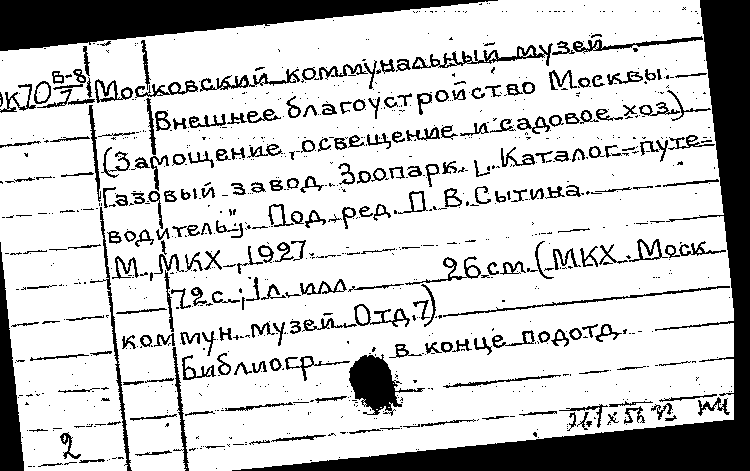 ОК70 В-8/7 Московский коммунальный музей.
Внешнее благоустройство Москвы.
(Замощение, освещение и садовое хоз.)
Газовый завод. Зоопарк. „Каталог-путе-
водитель". Под. ред. П.В.Сытина.
М., МКХ, 1927.
72с.; 1л. илл. 26 см. (МКХ. Моск.
коммун. музей. Отд.7)
Библиогр. в конце подотд.
2